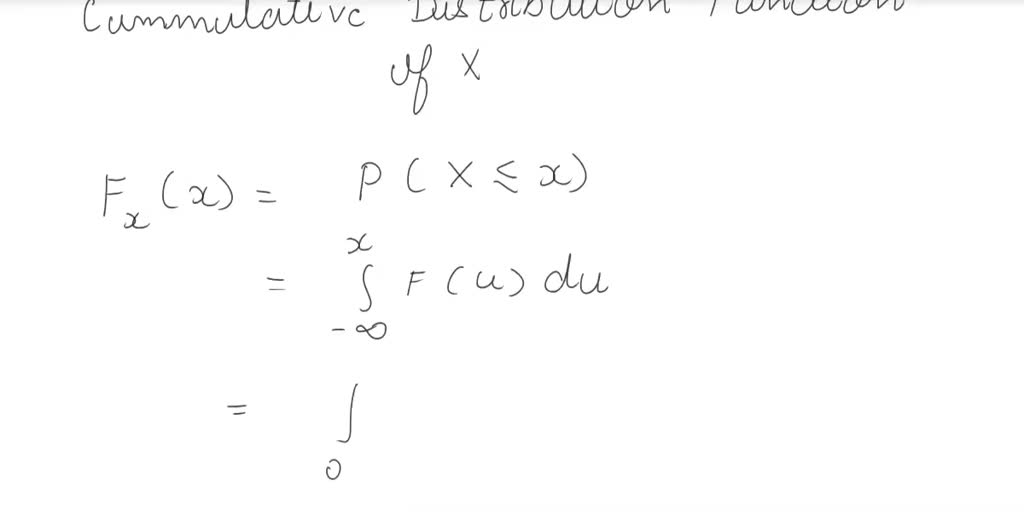 Cummulative Distribution Function
of X
F_x (x) = P ( X ⩽ x)
= ∫_{-∞}^{x} F (u) du
= ∫_{0}